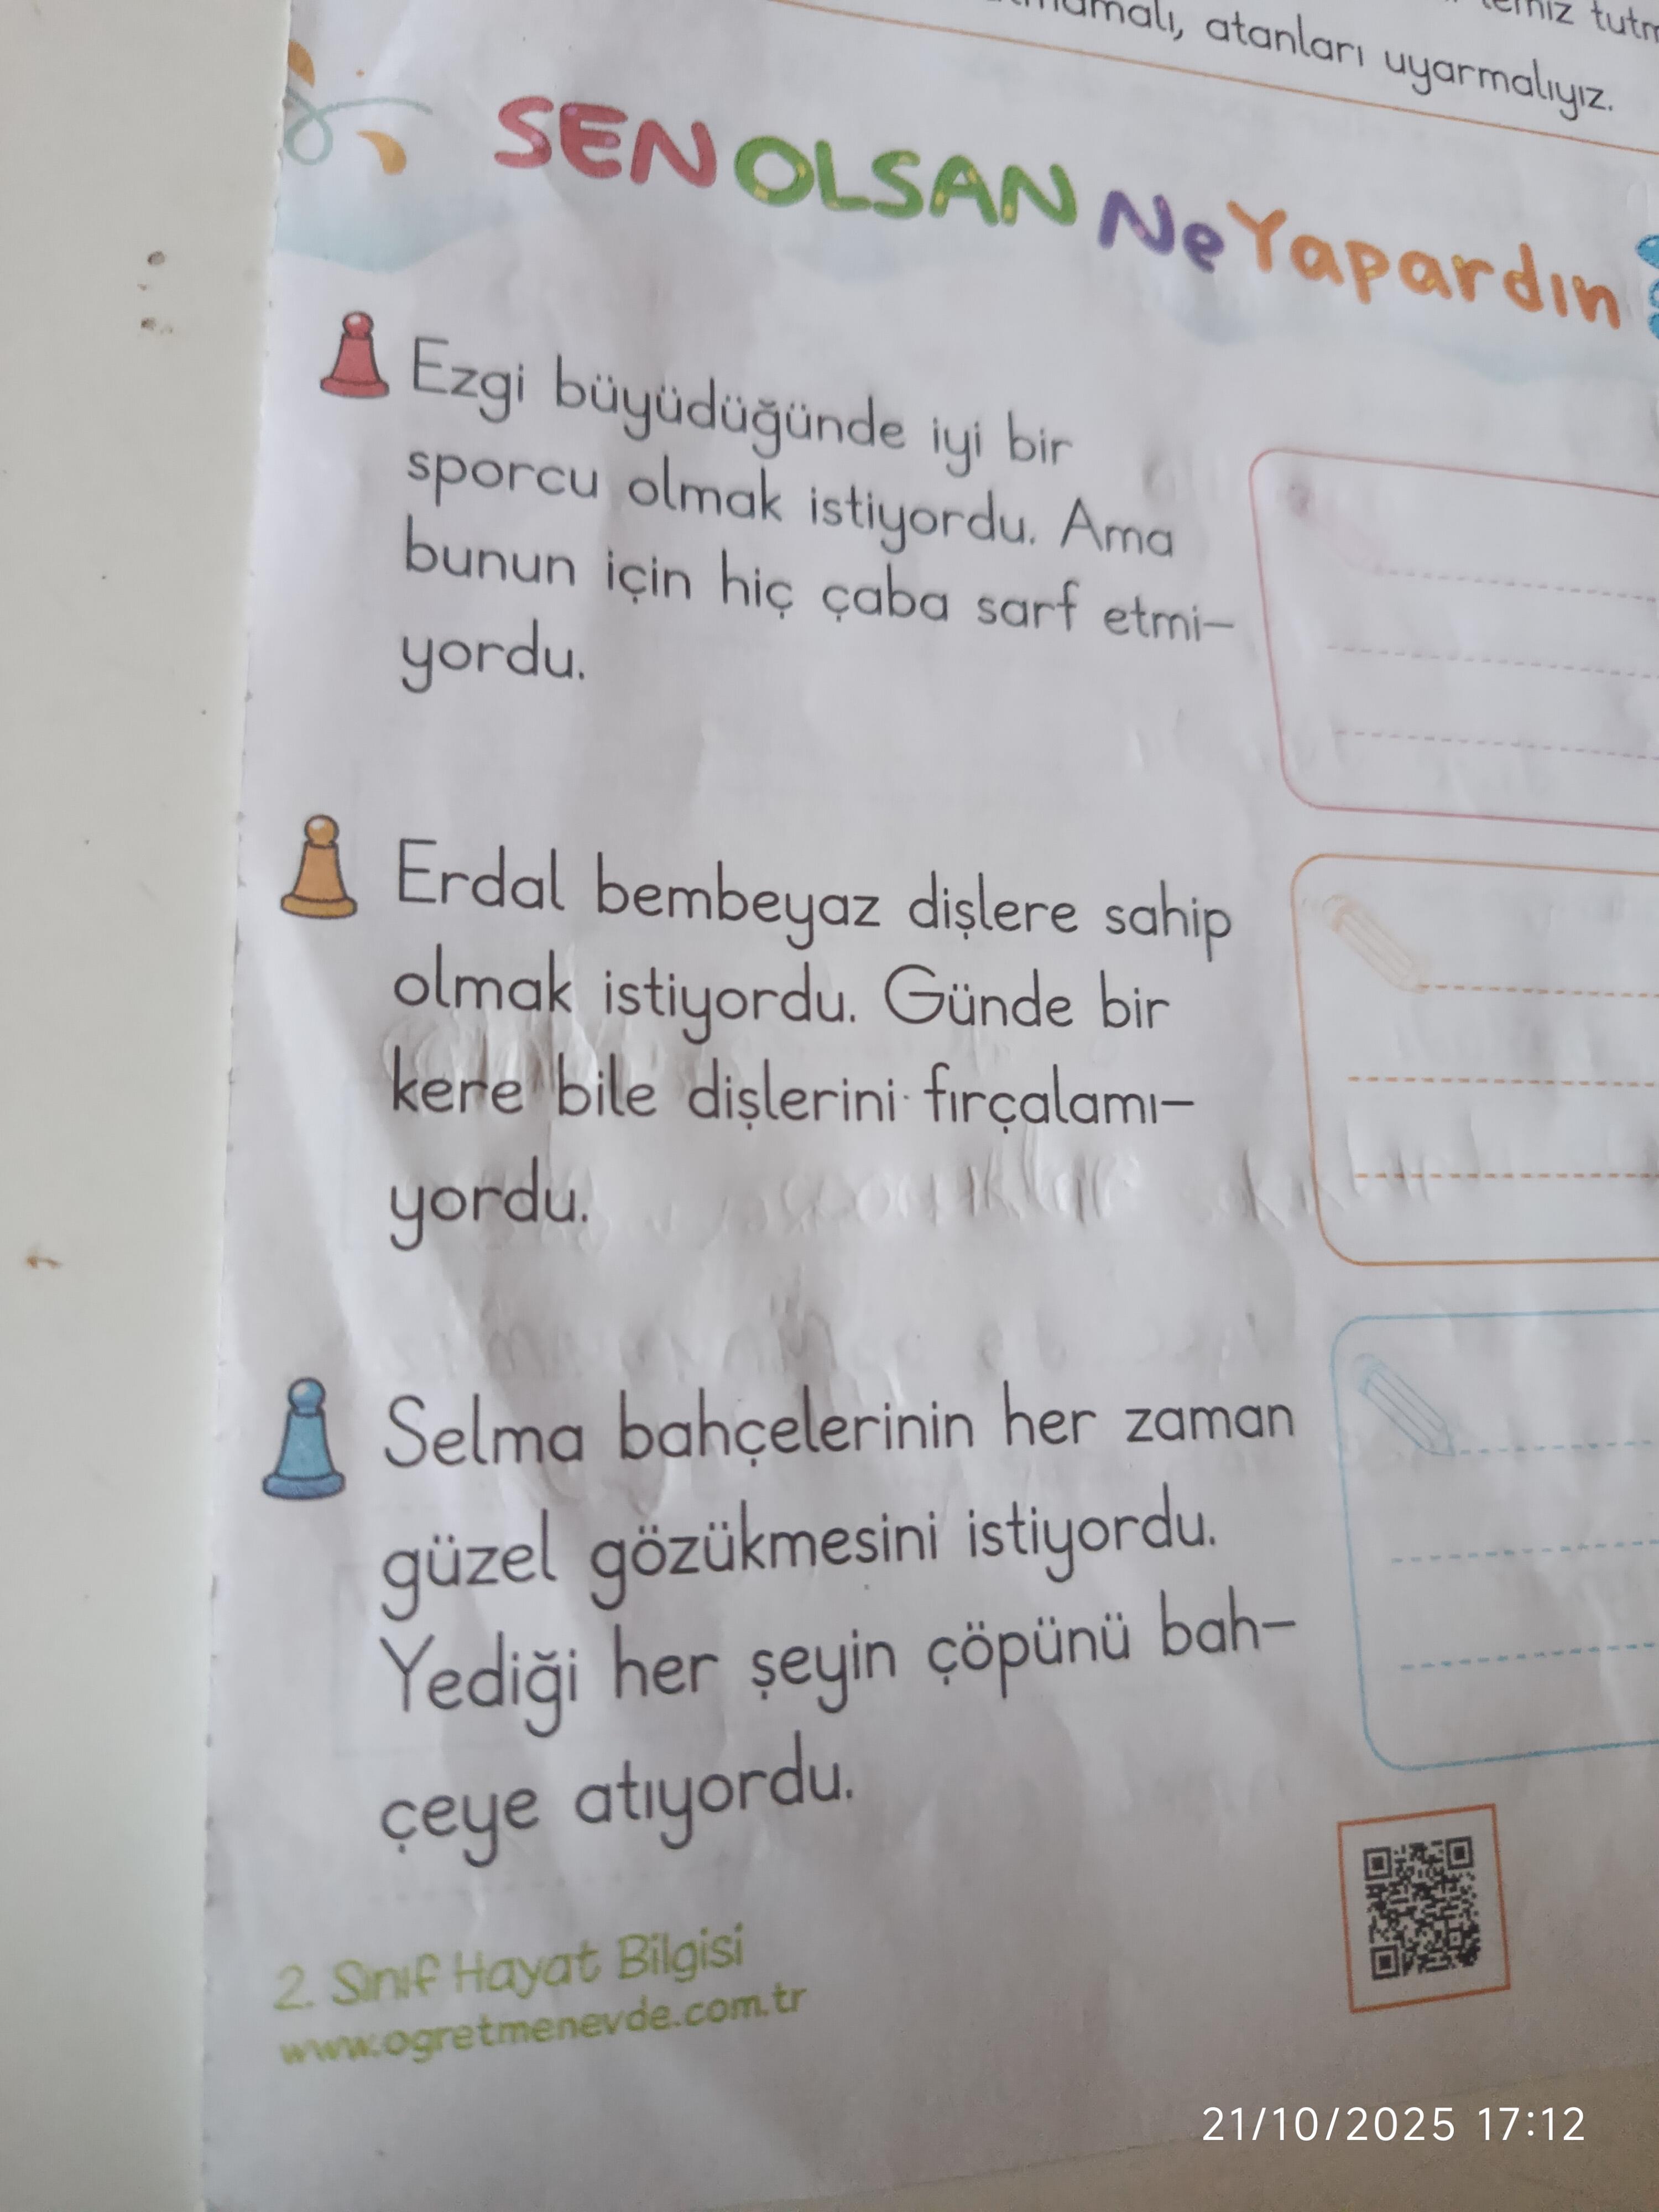 temiz
atanları uyarmalıyız.
SEN OLSAN Ne Yapardın
Ezgi büyüdüğünde iyi bir
sporcu olmak istiyordu. Ama
bunun için hiç çaba sarf etmi-
yordu.
Erdal bembeyaz dişlere sahip
olmak istiyordu. Günde bir
kere bile dişlerini fırçalamı-
yordu.
Selma bahçelerinin her zaman
güzel gözükmesini istiyordu.
Yediği her şeyin çöpünü bah-
çeye atıyordu.
2. Sınıf Hayat Bilgisi
www.ogretmenevde.com.tr
21/10/2025 17:12